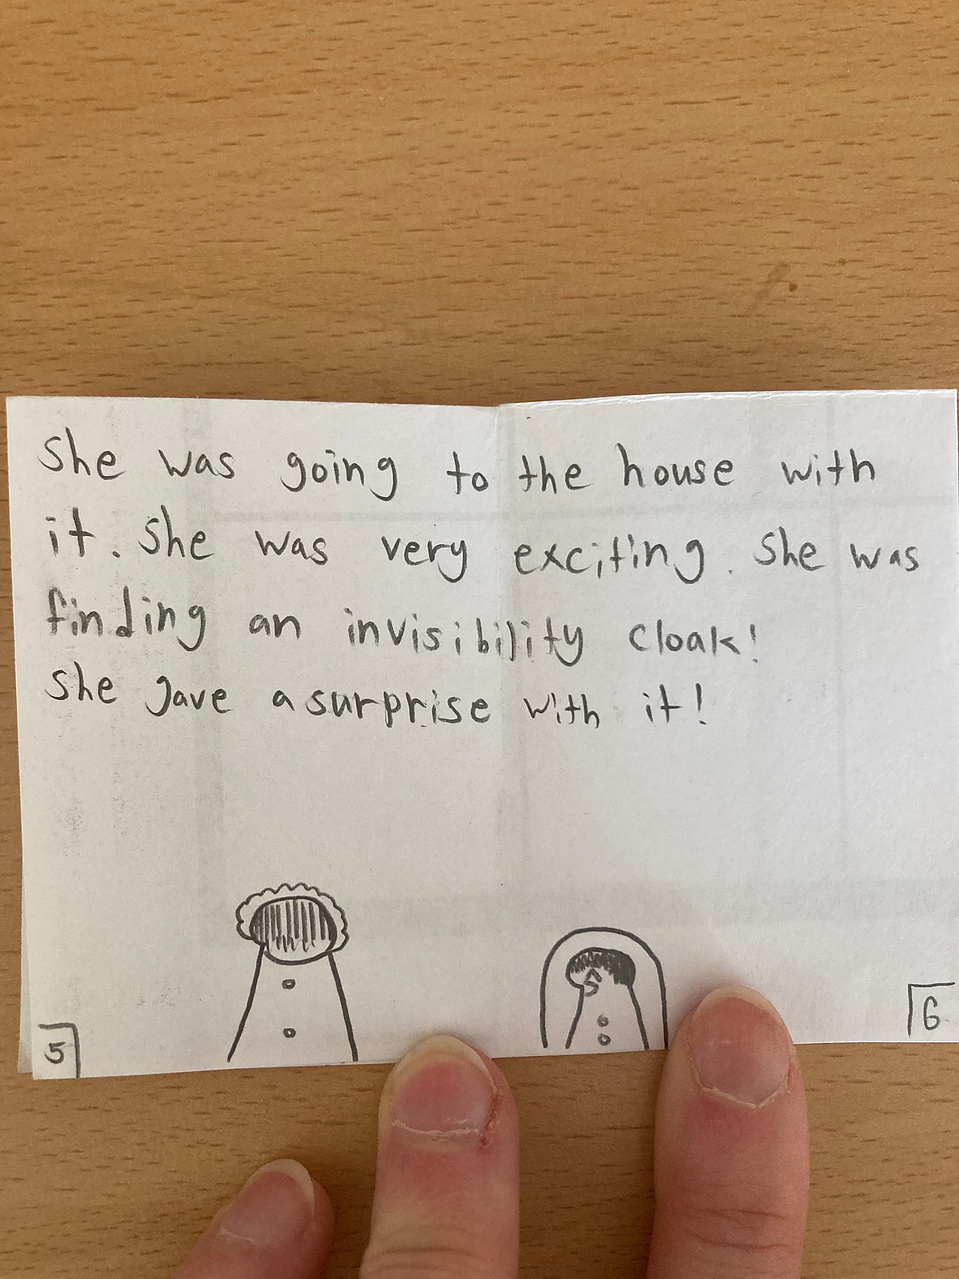 She was going to the house with
it. She was very exciting. She was
finding an invisibility cloak!
She gave a surprise with it!
5
6